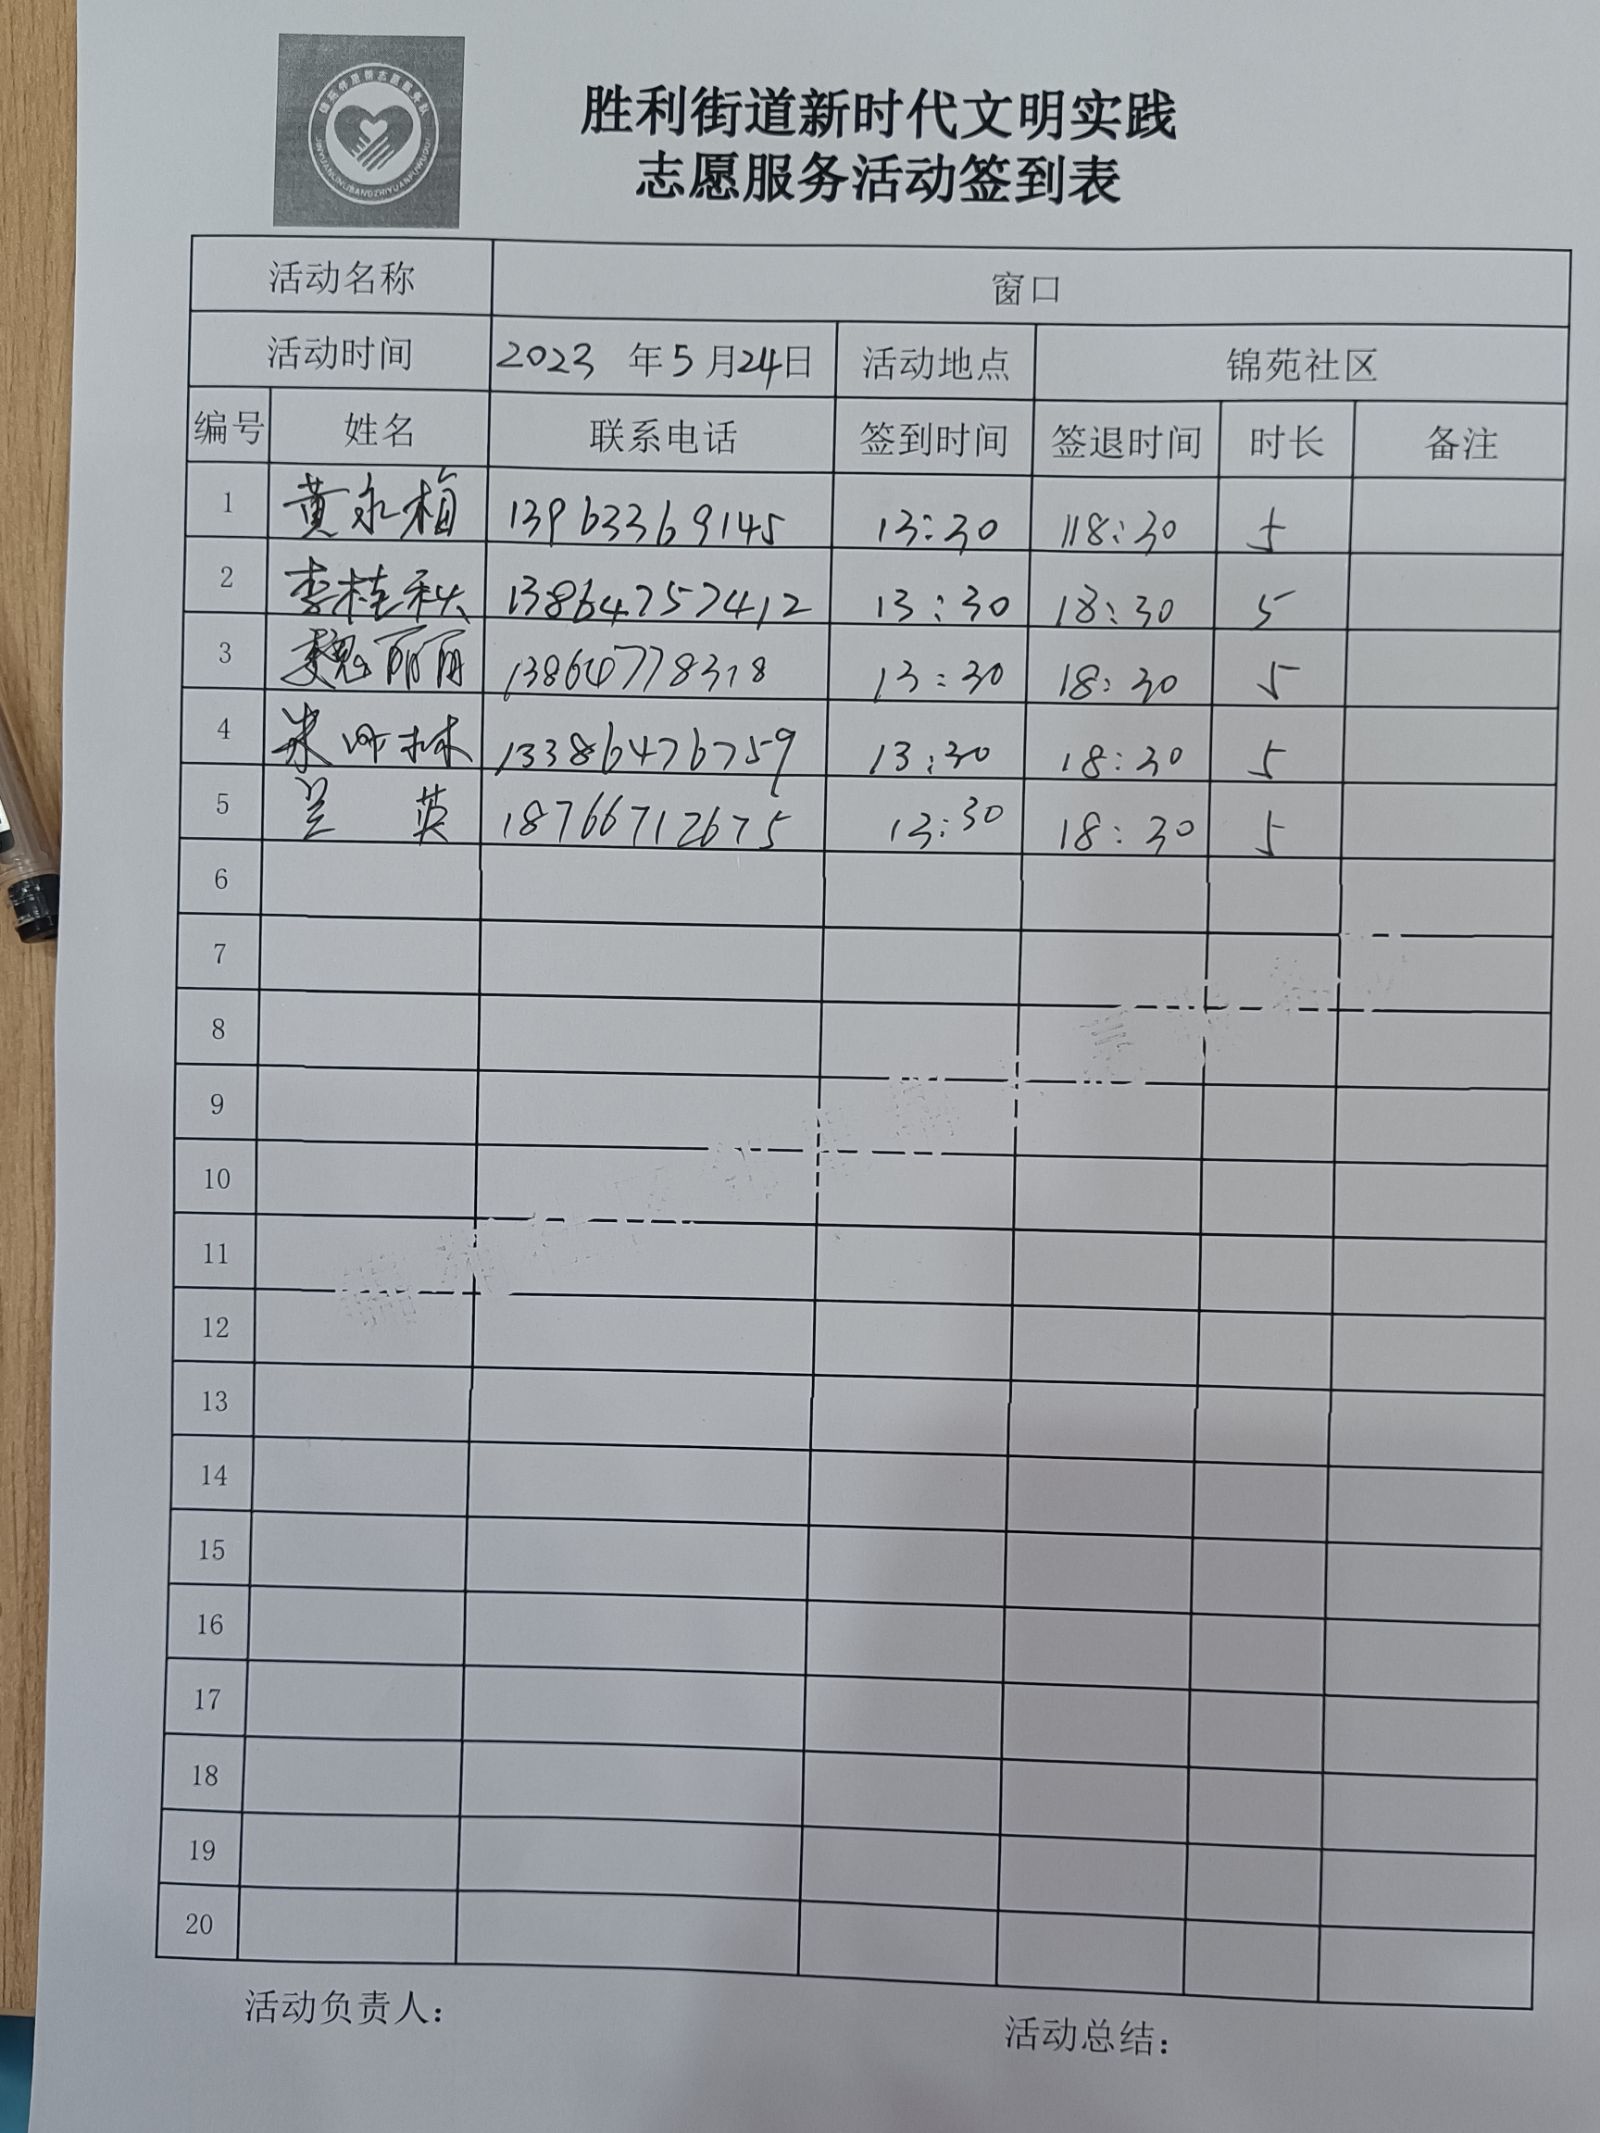 锦苑邻里帮志愿服务队
JINYUANLINLIBANGZHIYUANFUWUDUI
胜利街道新时代文明实践
志愿服务活动签到表
活动名称 窗口
活动时间 2023 年 5 月 24 日 活动地点 锦苑社区
编号 姓名 联系电话 签到时间 签退时间 时长 备注
1 黄永梅 13963369145 13:30 18:30 5
2 李桂秋 13864757412 13:30 18:30 5
3 魏丽丽 13864778318 13:30 18:30 5
4 13386476759 13:30 18:30 5
5 兰英 18766712675 13:30 18:30 5
6
7
8
9
10
11
12
13
14
15
16
17
18
19
20
活动负责人： 活动总结：